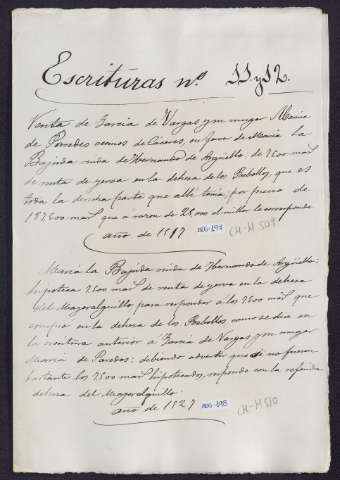 Escrituras nº 11 y 12.
Venta de Garcia de Vargas y su muger Maria
de Paredes vecinos de Cáceres, en favor de Maria la
Bajida viuda de Hernando de Argüello, de 2500 mail
de renta de yerva en la dehesa de los Rebollos, que es
toda la decima parte que alli tenia; por precio de
157500 mail que a razon de 28000 el millar le corresponde
año de 1517 CH-M 509
Maria la Bajida viuda de Hernando de Argüello:
hipoteca 2500 mail de renta de yerva en la dehesa
del Mayoralguillo, para responder a los 2500 mail que
compro en la dehesa de los Rebollos como se dice en
la escritura anterior a Garcia de Vargas y su muger
Maria de Paredes: debiendo advertir que si no fueren
bastante los 2500 mail hipotecados, responde con la referida
dehesa del Mayoralguillo
año de 1527 CH-M 510